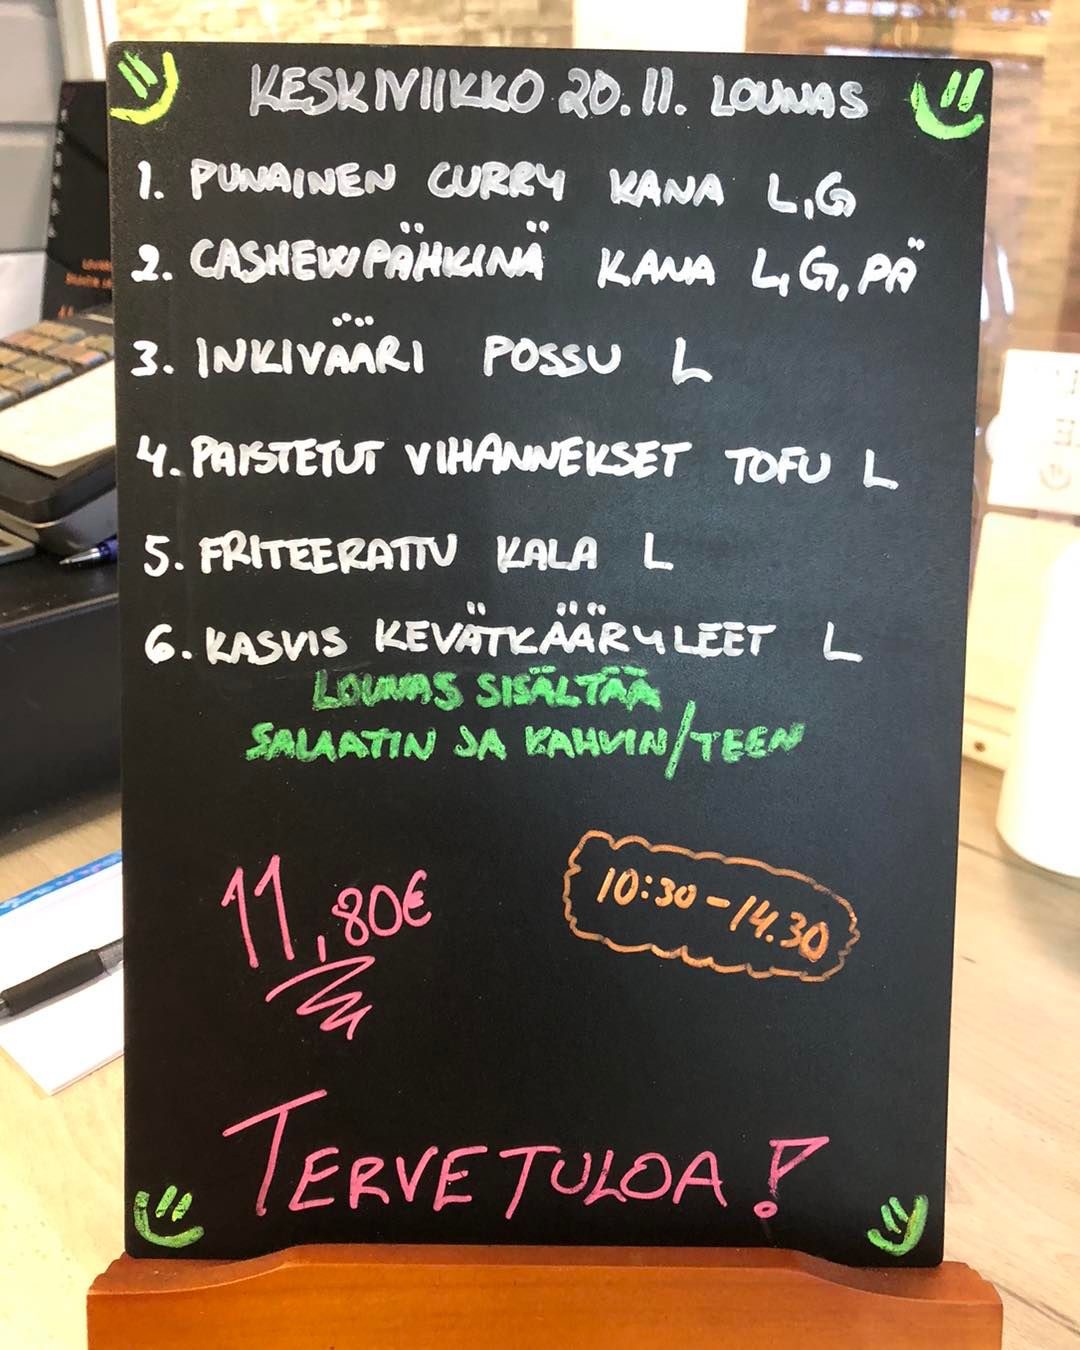 KESKIVIIKKO 20.11. LOUNAS
1. PUNAINEN CURRY KANA L,G
2. CASHEWPÄHKINÄ KANA L,G,PÄ
3. INKIVÄÄRI POSSU L
4. PAISTETUT VIHANNEKSET TOFU L
5. FRITEERATTU KALA L
6. KASVIS KEVÄTKÄÄRYLEET L
LOUNAS SISÄLTÄÄ
SALAATIN JA KAHVIN/TEEN
11,80€
10:30-14.30
TERVETULOA!